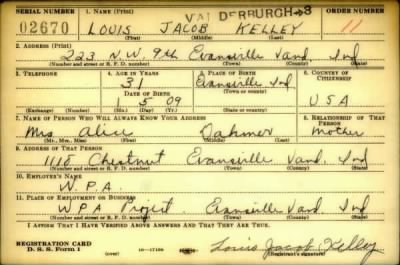 SERIAL NUMBER 1. NAME (Print) VANDERBURGH-3 ORDER NUMBER
02670 LOUIS JACOB KELLEY 11
(First) (Middle) (Last)
2. ADDRESS (Print)
223 N.W. 9th Evansville Vand. Ind
(Number and street or R. F. D. number) (Town) (County) (State)
3. TELEPHONE 4. AGE IN YEARS 5. PLACE OF BIRTH 6. COUNTRY OF CITIZENSHIP
31 Evansville
DATE OF BIRTH (Town or county)
1 5 09 Ind USA
(Exchange) (Number) (Mo.) (Day) (Yr.) (State or country)
7. NAME OF PERSON WHO WILL ALWAYS KNOW YOUR ADDRESS 8. RELATIONSHIP OF THAT PERSON
Mrs Alice Dahmer Mother
(Mr., Mrs., Miss) (First) (Middle) (Last)
9. ADDRESS OF THAT PERSON
1118 Chestnut Evansville Vand. Ind
(Number and street or R. F. D. number) (Town) (County) (State)
10. EMPLOYER'S NAME
W.P.A.
11. PLACE OF EMPLOYMENT OR BUSINESS
WPA Project Evansville Vand. Ind
(Number and street or R. F. D. number) (Town) (County) (State)
I AFFIRM THAT I HAVE VERIFIED ABOVE ANSWERS AND THAT THEY ARE TRUE.
REGISTRATION CARD
D. S. S. Form 1 (over) 16-17105 Louis Jacob Kelley
(Registrant's signature)